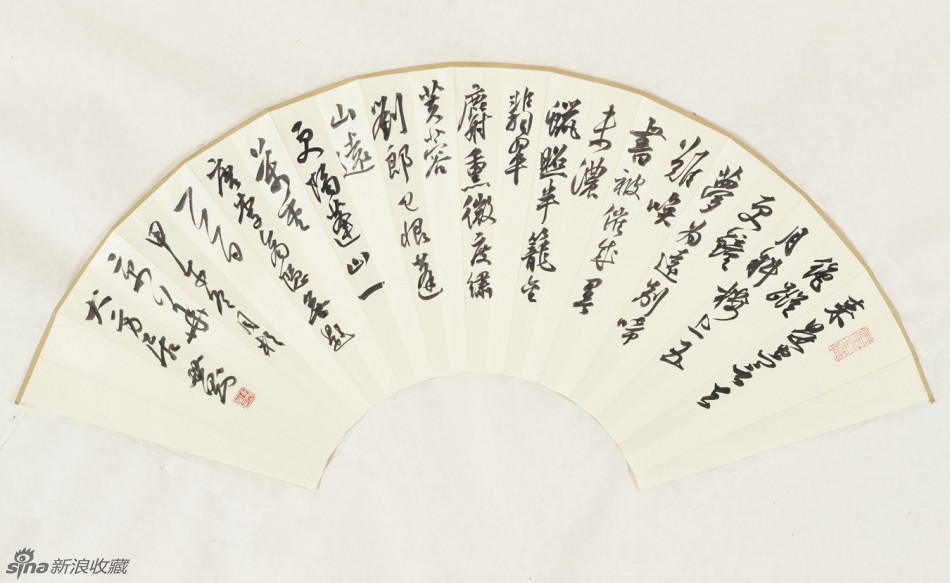 來是空言去
絕蹤
月斜樓上五
更鐘
夢為遠別啼
難喚
書被催成墨
未濃
蠟照半籠金
翡翠
麝熏微度繡
芙蓉
劉郎已恨蓬
山遠
更隔蓬山一
萬重
唐李商隱無題
一首
甲午冬月於
sina新浪收藏